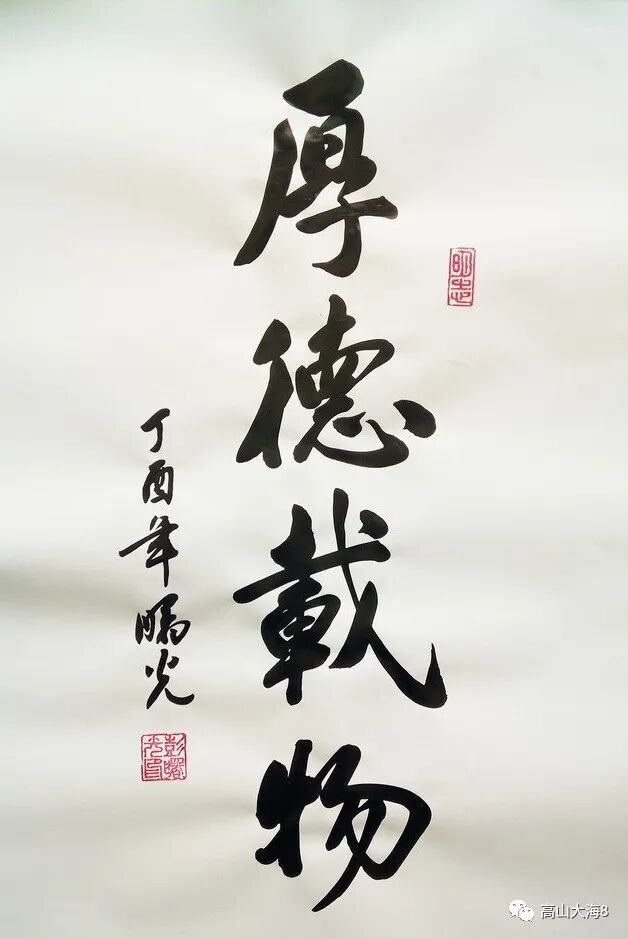 厚德載物
明志
丁酉年光
高山大海8